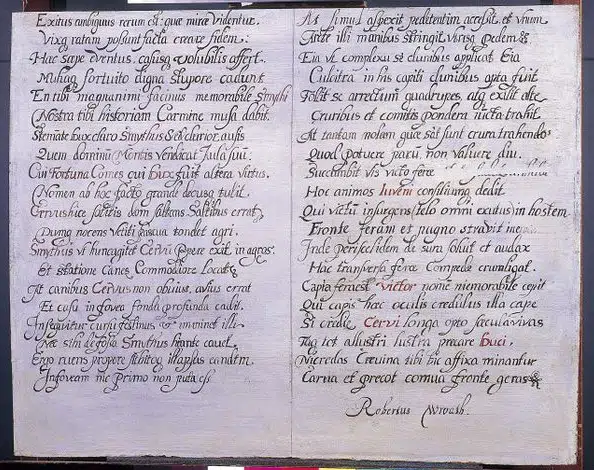 Exitus ambiguus rerum est: quæ miræ videntur.
Vixq ratam possunt facta creare fidem:
Hac sæpe eventus, casusq volubilis affert.
Multaq fortuito digna stupore cadunt
En tibi magnanimi facinus memorabile Smythi
Nostra tibi historiam Carmine musa dabit.
Stemate Smythus
Quem dominum Mortis Vendicat Aula suum:
Cui Fortuna Comes cui Dux fuit altera virtus.
Nomen ab hoc facto grande decusq tulit.
Cervus hice salibus errat
Dumq nocens Vetiti pascua tondet agri.
Smythus vt hunc agitet Cervū propere exit in agros.
Et statione Canes Commodiore Locat
Ast canibus Cervus non obuius, auius errat
Et casu in fovea fonda profunda cadit.
Insequitur cursu festinus &
Smythus hiante
Ergo ruens propere
In foveam nic Primo non
Ac simul aspexit pedetentim accessit et vnum
illi manibus stringit vtrisq pedem
Eia vt complexu se clunibus applicat Eia
Culcitra in his capiti clunibus apta fuit
Tollit se arrectum quadrupes, atq exilit alte
Cruribus et comitis pondera iuncta trahit
Ast tantam molam quæ sat sunt crura trahendo
Quod potuere parū, non valuere diu.
Succumbit vis victo feræ
Hoc animos Iuveni consiliumq dedit
Qui victū insurgens (telo omni exutus) in hostem
Fronte feram et pugno stravit
Inde periscelidem de sura soluit et audax
Hac transversa feræ Compede crura ligat.
Capta feræ est victor nomē memorabile cepit
Qui capis hac oculis credulus illa cape
Si credis Cervi longa opto sæcula vivas
Tuq tot a lustri lustra precare Duci.
tibi hic affixa minantur
et precor cornua fronte geras
Robertus Wroath.